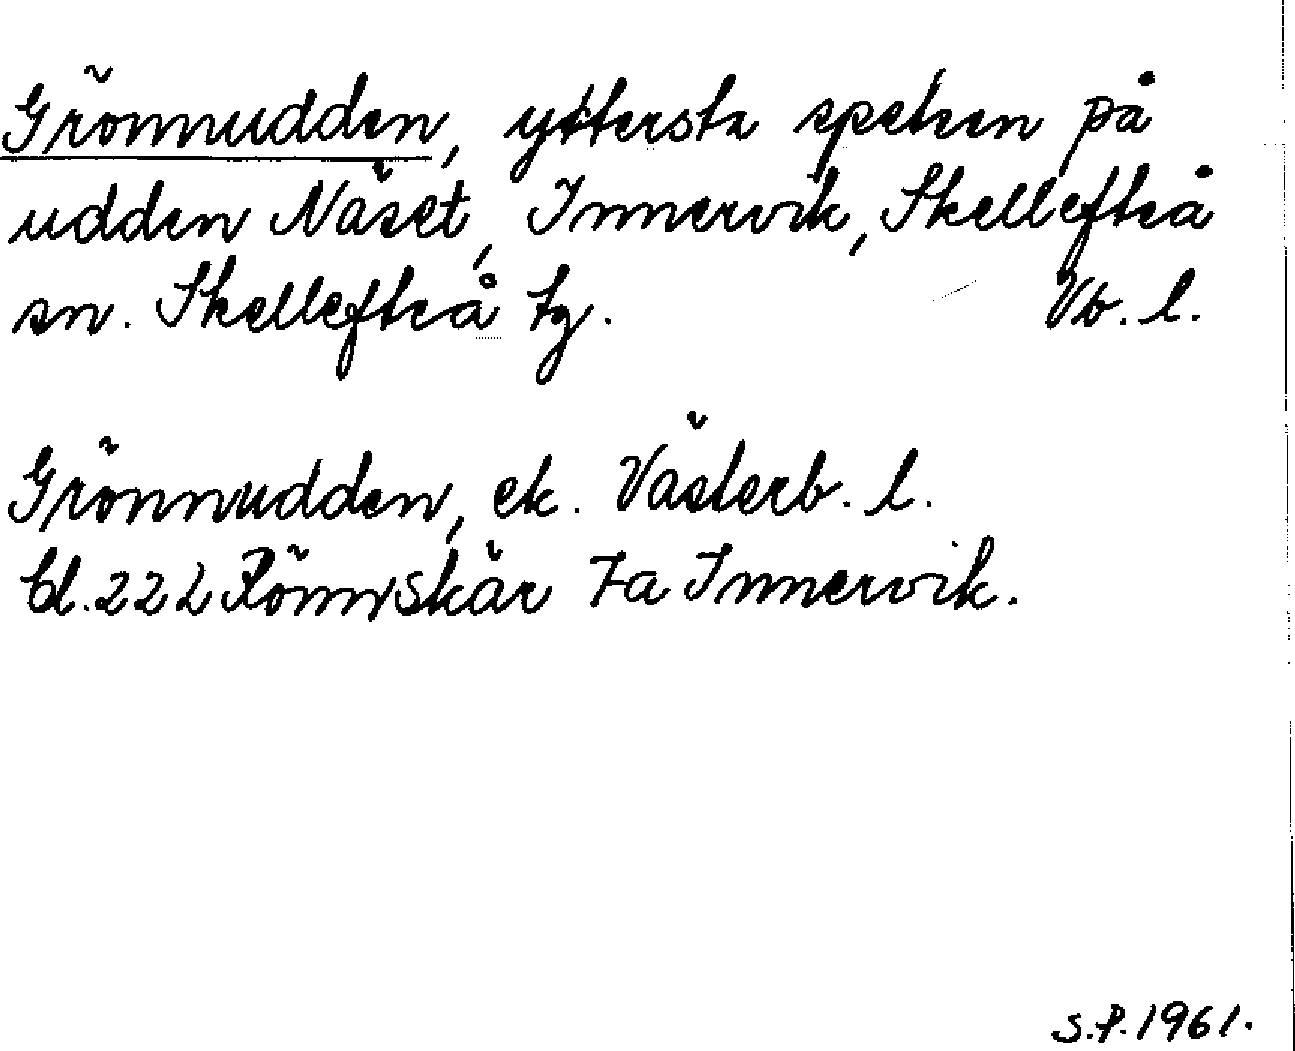 Grönnudden, yttersta spetsen på
udden Näset, Innervik, Skellefteå
sn. Skellefteå tg. Vb. l.
Grönnudden, ek. Västerb. l.
bl. 22 L Rönnskär 7a Innervik.
S.P. 1961.